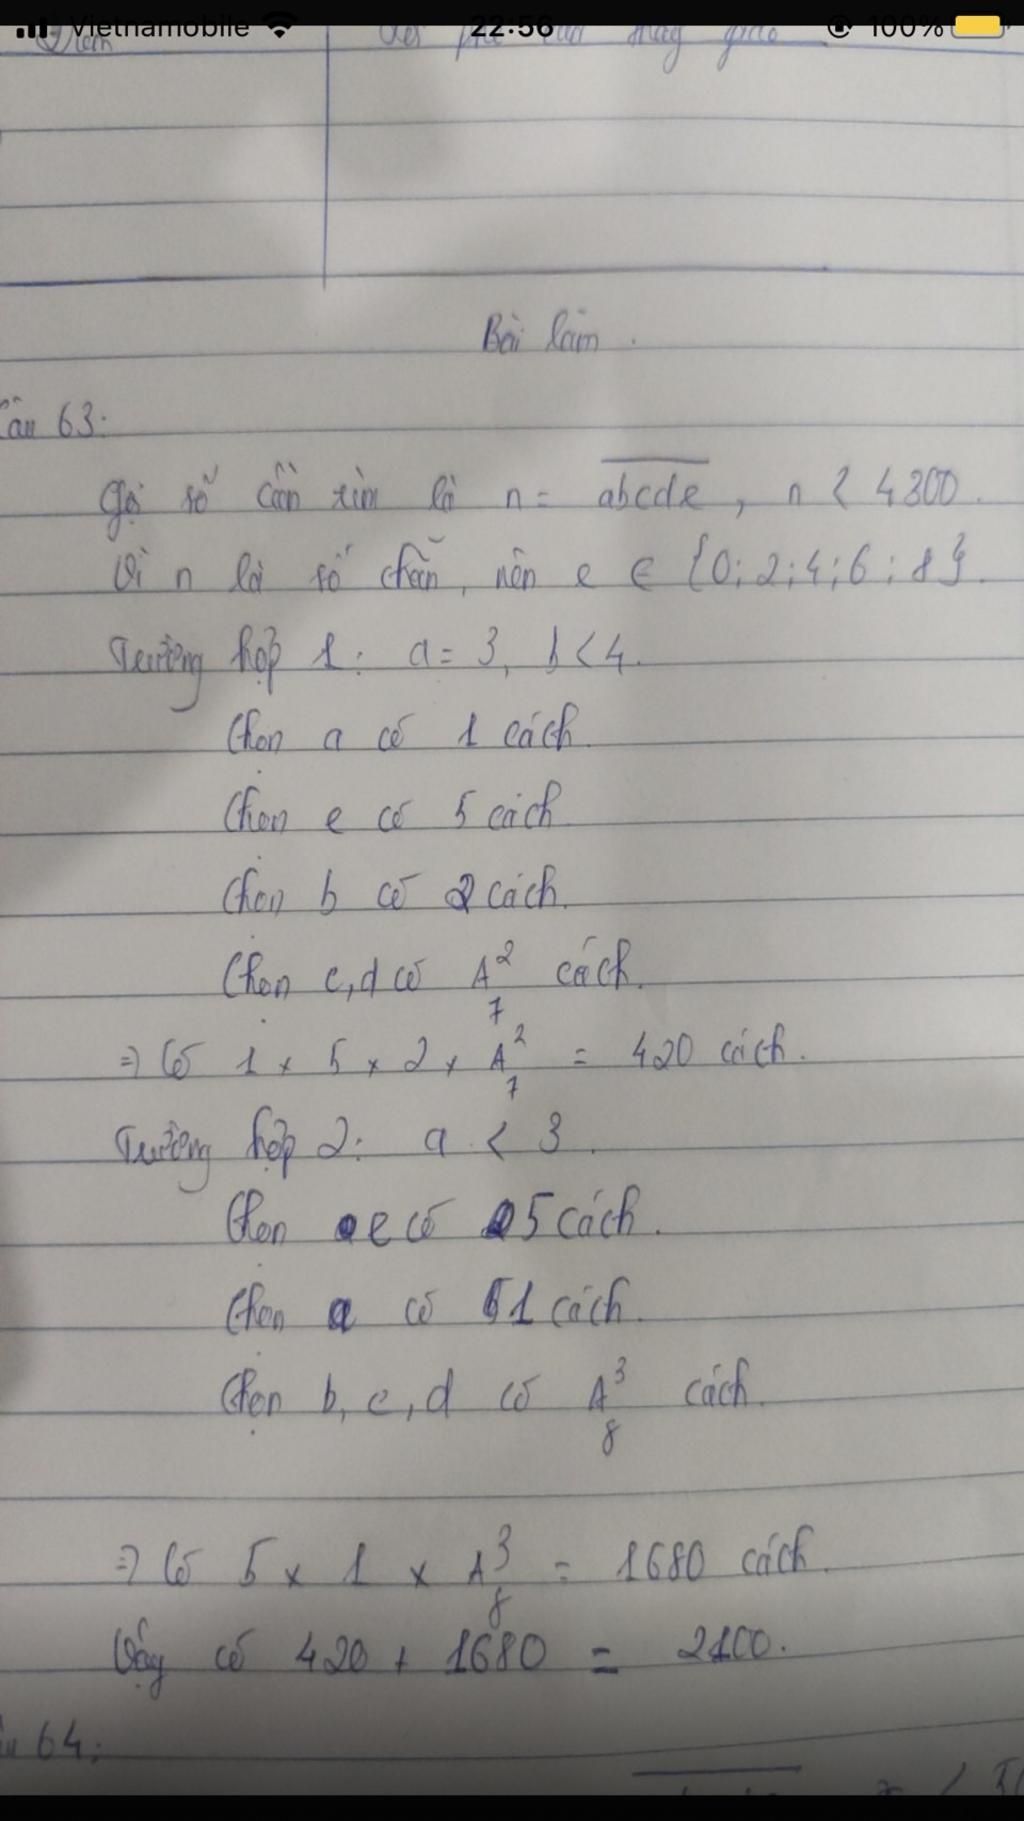 Vietnamobile 22:56 100%
Bài làm.
Câu 63:
Gọi số cần tìm là n = abcde, n < 4300.
Vì n là số chẵn, nên e ∈ {0; 2; 4; 6; 8}.
Trường hợp 1: a = 3, b < 4.
Chọn a có 1 cách.
Chọn e có 5 cách
Chọn b có 2 cách.
Chọn c, d có A²₇ cách.
=> Có 1 x 5 x 2 x A²₇ = 420 cách.
Trường hợp 2: a < 3.
Chọn e có 5 cách.
Chọn a có 1 cách.
Chọn b, c, d có A³₈ cách.
=> Có 5 x 1 x A³₈ = 1680 cách.
Vậy có 420 + 1680 = 2100.
64: